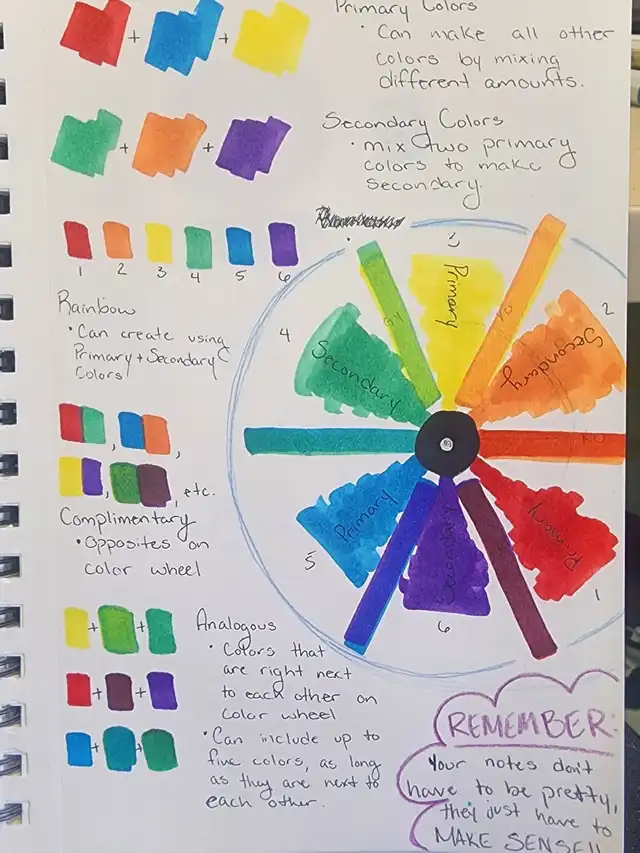 Primary Colors
• Can make all other
colors by mixing
different amounts.
+ +
Secondary Colors
• mix two primary
colors to make
secondary.
+ +
1 2 3 4 5 6
Rainbow
• Can create using
Primary + Secondary
Colors
3
Primary
YO
2
Secondary
RO
Primary
1
Secondary
6
Primary
5
Secondary
4
, ,
, , etc.
Complimentary
• Opposites on
color wheel
+ +
+ +
+ +
Analogous
• Colors that
are right next
to each other on
color wheel
• Can include up to
five colors, as long
as they are next to
each other.
REMEMBER:
Your notes don't
have to be pretty,
they just have to
MAKE SENSE!!